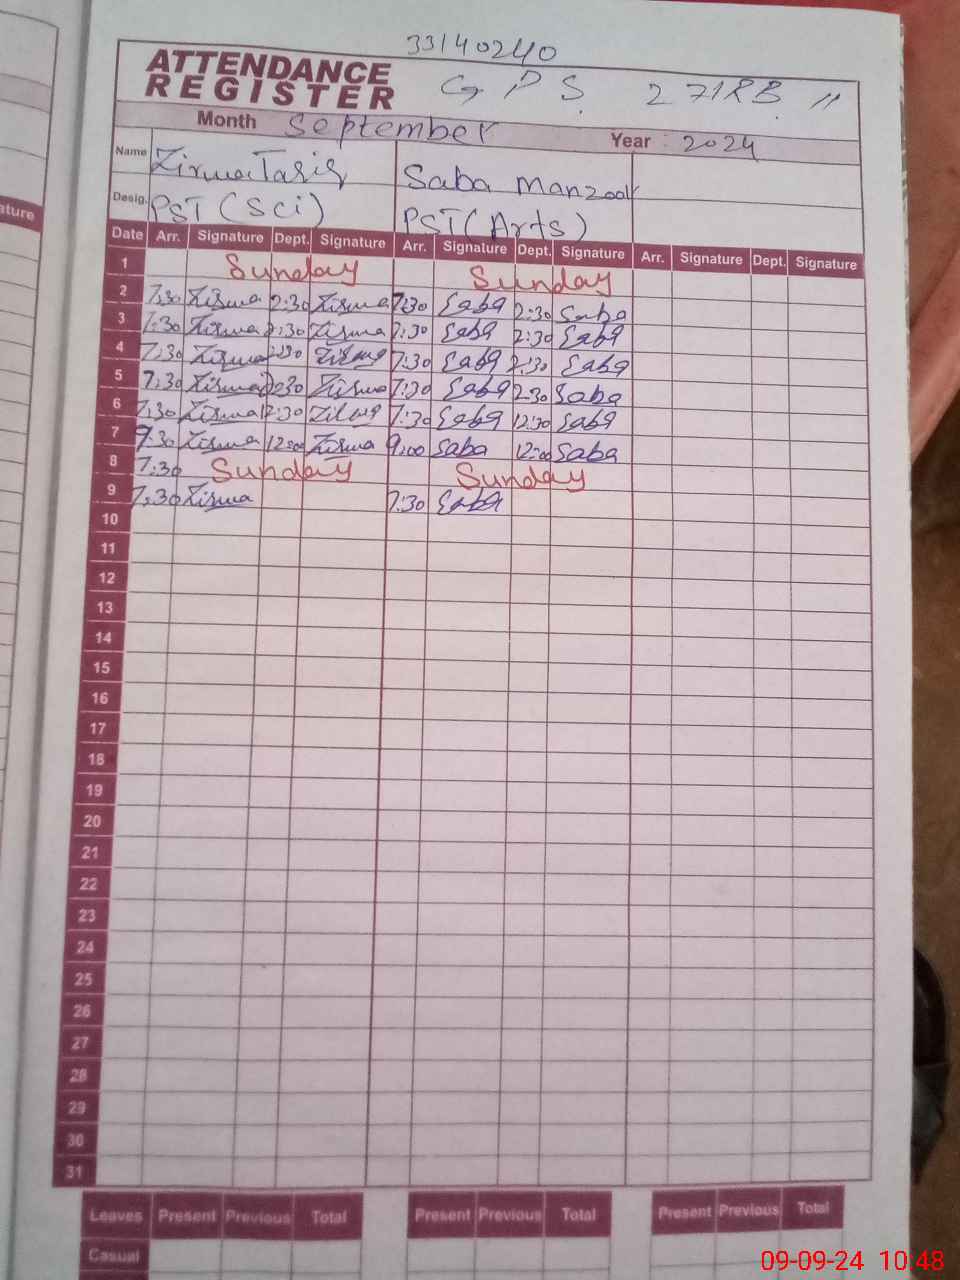 33140240
ATTENDANCE REGISTER
G P S 271RB
Month September Year : 2024
Name Saba Manzoor
Desig. PST (Sci) PST (Arts)
Date Arr. Signature Dept. Signature Arr. Signature Dept. Signature Arr. Signature Dept. Signature
1 Sunday Sunday
2 7:30 Zirwa 2:30 Zirwa 7:30 Saba 2:30 Saba
3 7:30 Zirwa 2:30 Zirwa 7:30 Saba 2:30 Saba
4 7:30 Zirwa 2:30 Zirwa 7:30 Saba 2:30 Saba
5 7:30 Zirwa 2:30 Zirwa 7:30 Saba 2:30 Saba
6 7:30 Zirwa 12:30 Zirwa 7:30 Saba 12:30 Saba
7 7:30 Zirwa 12:00 Zirwa 9:00 Saba 12:00 Saba
8 7:30 Sunday Sunday
9 7:30 Zirwa 7:30 Saba
10
11
12
13
14
15
16
17
18
19
20
21
22
23
24
25
26
27
28
29
30
31
Leaves Present Previous Total Present Previous Total Present Previous Total
Casual
09-09-24 10:48